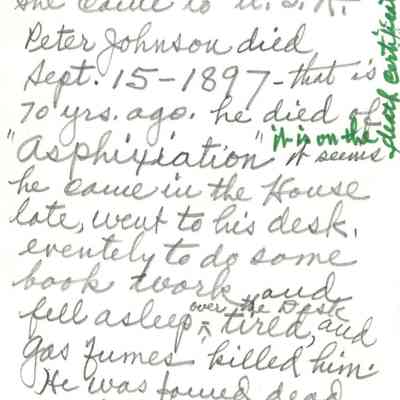 she came to U.S.A.
Peter Johnson died
Sept. 15-1897-that is
70 yrs. ago. he died of
"Asphixiation" it is on the death certificate
it seems
he came in the House
late, went to his desk.
eventely to do some
book work and
fell asleep over the Desk tired, and
gas fumes killed him.
He was found dead